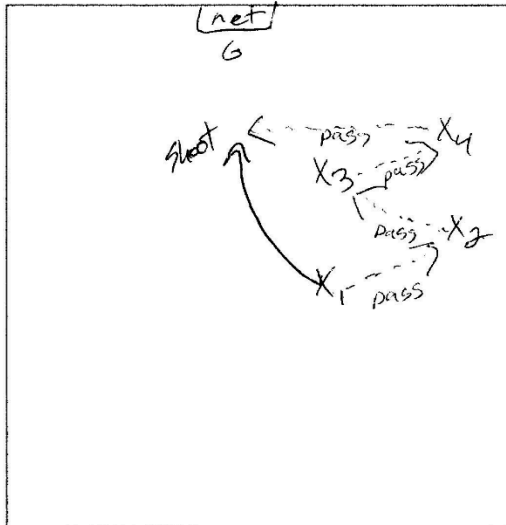 net
G
shoot
pass
X4
X3
pass
pass
X2
X1
pass